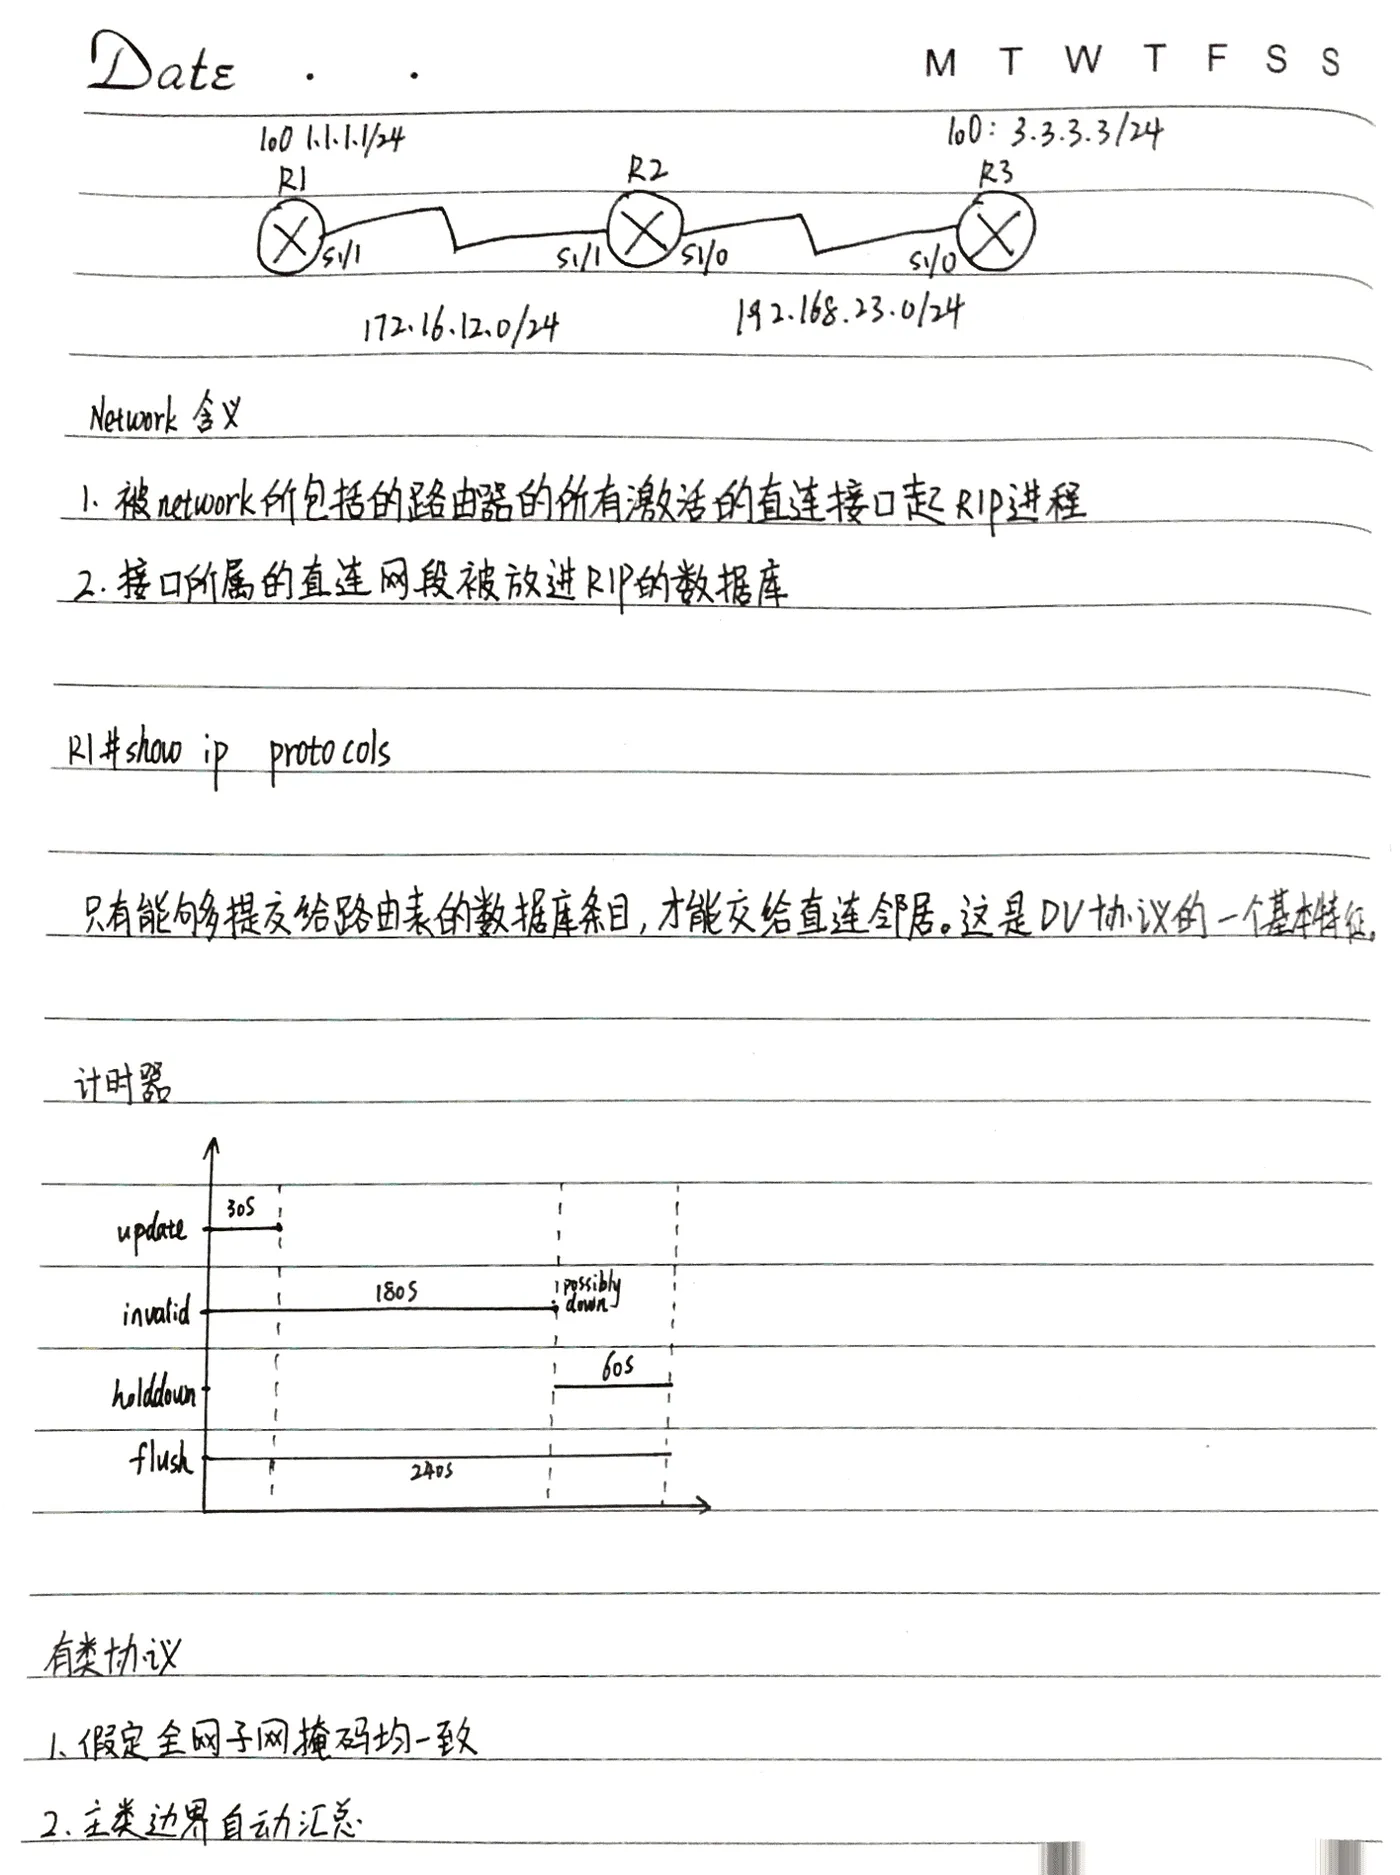 Date . .
M T W T F S S
lo0 1.1.1.1/24
lo0: 3.3.3.3/24
R1
R2
R3
S1/1
S1/1
S1/0
S1/0
172.16.12.0/24
192.168.23.0/24
Network 含义
1. 被network所包括的路由器的所有激活的直连接口起RIP进程
2. 接口所属的直连网段被放进RIP的数据库
R1#show ip protocols
只有能够提交给路由表的数据库条目,才能交给直连邻居。这是DV协议的一个基本特征。
计时器
update
30S
invalid
180S
possibly
down
holddown
60S
flush
240S
有类协议
1、假定全网子网掩码均一致
2、主类边界自动汇总